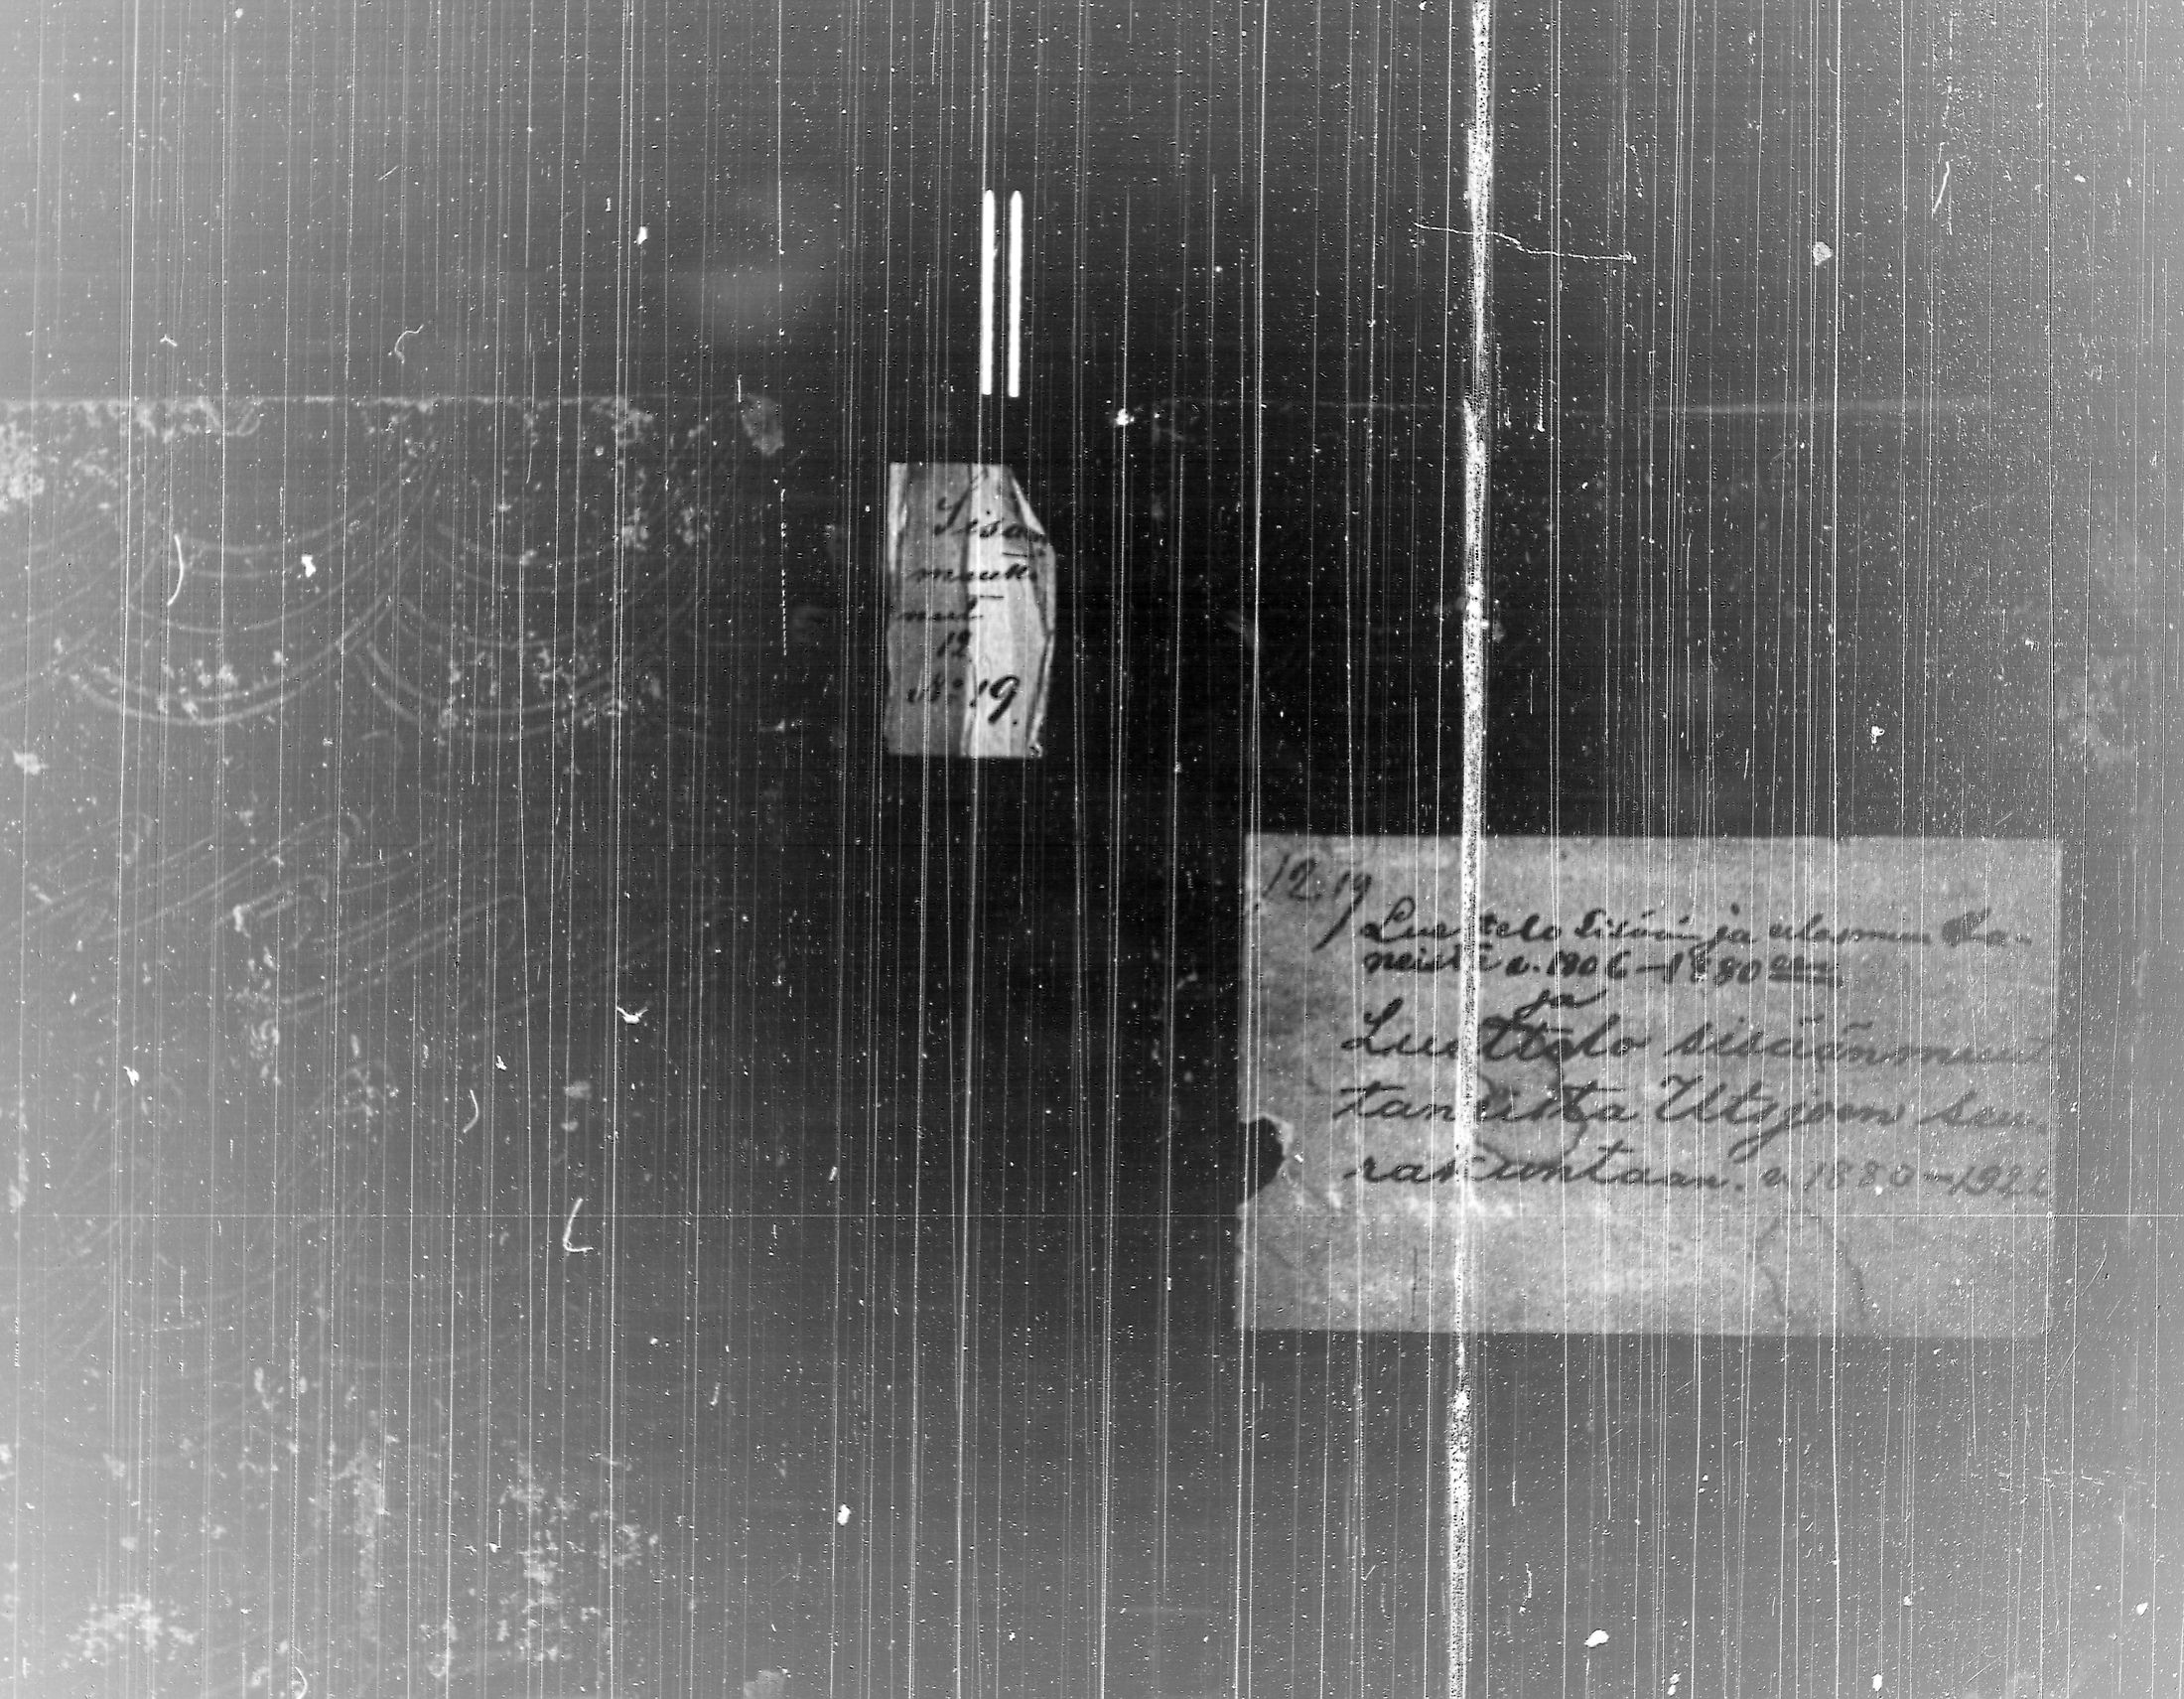 Sisään
muutta
neet
12
№ 19.
12.19
Luettelo sisään ja ulosmuutta-
neista v. 1806–1880 een
ja
Luettelo sisäänmuut
taneista Utsjoen seu-
rakuntaan. v. 1880–192